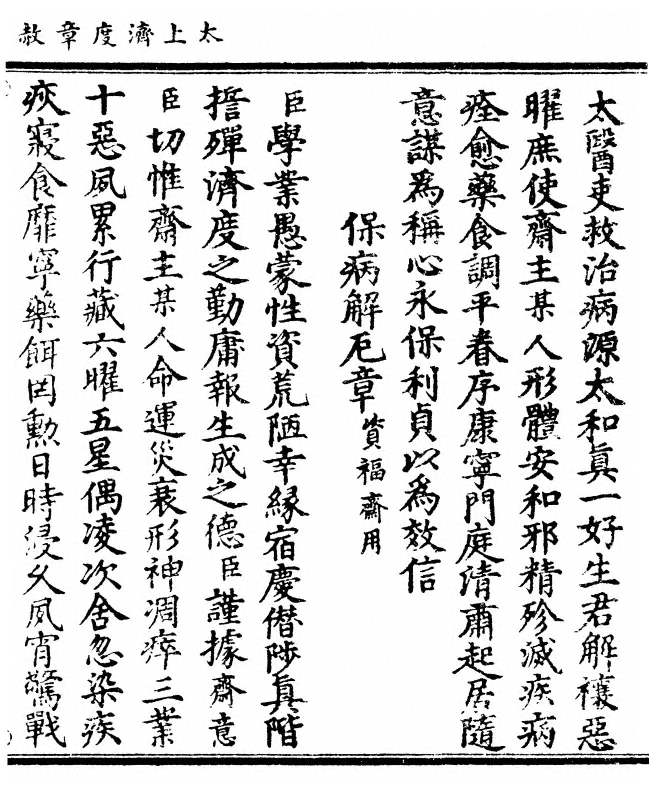 太上濟度章赦
太醫吏救治病源太和眞一好生君解禳惡
曜庶使齋主某人形體安和邪精殄滅疾病
痊愈藥食調平春序康寧門庭清肅起居隨
意謀爲稱心永保利貞以爲效信
保病解厄章資福齋用
臣學業愚蒙性資荒陋幸緣宿慶僭陟眞階
誓殫濟度之勤庸報生成之德臣謹據齋意
臣切惟齋主某人命運災衰形神凋瘁三業
十惡夙累行藏六曜五星偶凌次舍忽染疾
疾寢食靡寧藥餌罔勳日時浸久夙宵驚戰